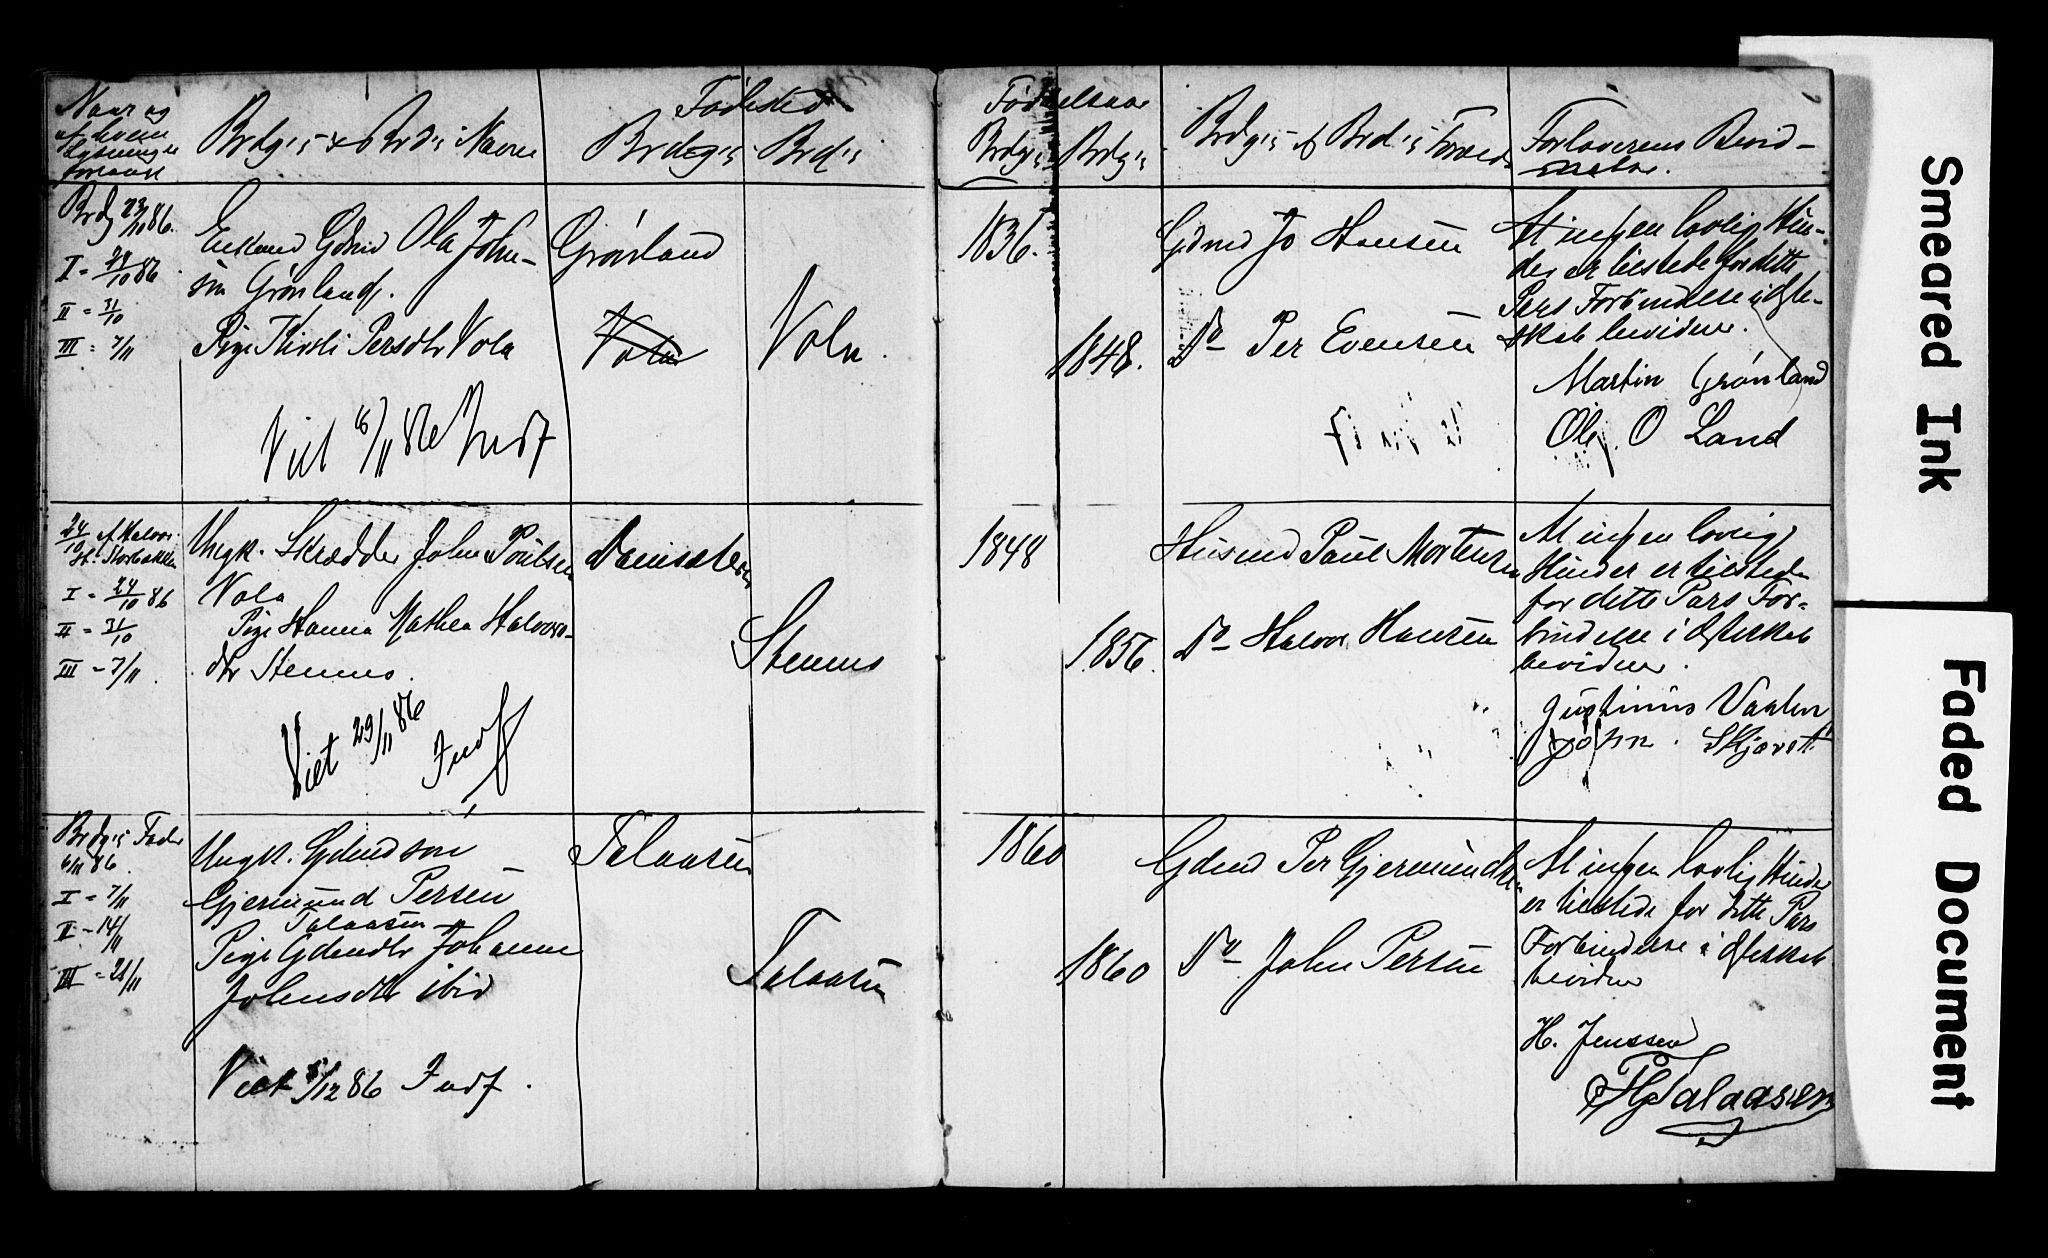 Naar og
af hvem
Lysning er
forlangt
Brdg's & Brd's Navne
Fødested
Brdg's Brd's
Fødselsaar
Brdg's Brdg's
Brdg's & Brd's Forældre
Forloverens Bevid-
nelse.
Brdg 23/10 86.
I = 24/10 86
II = 31/10
III = 7/11
Enkemd Gdmd Ola John-
sen Grønland.
Pige Kirsti Persdtr Vola
Viet 6/11 86 Indf
Grønland
Vola
Vola.
1836.
1848.
Gdmd Jo Hansen
Do Per Evensen
At ingen lovlig Hin-
der er tilstede for dette
Pars Forbindelse i Ægte-
skab bevidnes.
Martin Grønland
Ole O Land
24/10 af Halvor
H. Storbakken
I = 24/10 86
II = 31/10
III - 7/11.
Ungk. Skrædder John Poulsen
Vola
Pige Hanna Mathea Halvors-
dtr Stenmo.
Viet 29/11 86
Indf
Stenmo
1848
1856.
Husmd Paul Mortensen
Do Halvor Hansen
At ingen lovlig
Hinder er tilstede
for dette Pars For-
bindelse i Ægteskab
bevidnes.
Justinus Vaalen
John Skjøvett
Brdg's Fader
6/11 86.
I = 7/11
II - 14/11
III = 21/11
Ungk. Gdmdsøn
Gjermund Persen
Talaasen
Pige Gdmdtr Johanne
Johnsdtr ibid
Viet 5/12 86 Indf.
Talaasen
Talaasen
1860
1860
Gdmd Per Gjermundsen
Do John Persen
At ingen lovlig Hinder
er tilstede for dette Pars
Forbindelse i Ægteskab
bevidnes
H. Jenssen
PG Talaasen
Smeared Ink
Faded Document